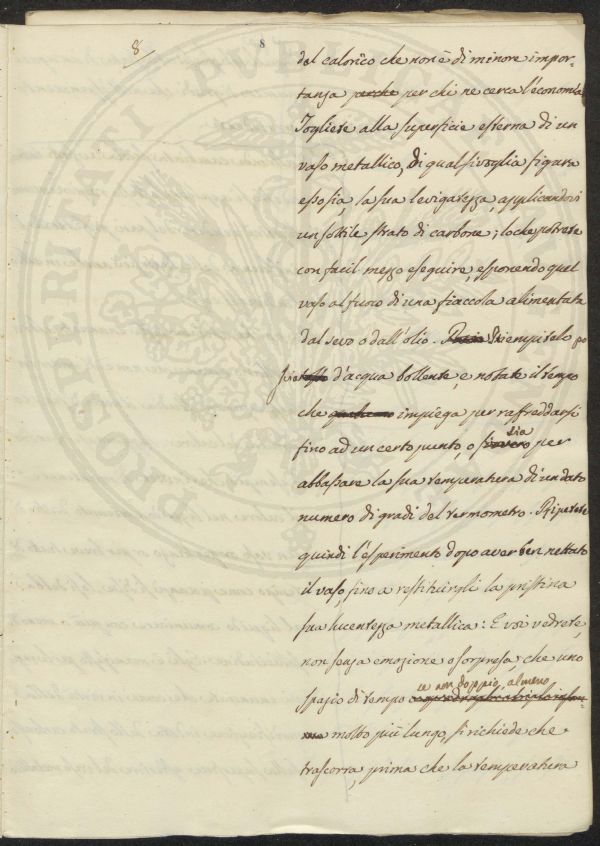 8 8
del calorico che non è di minore impor-
tanza perche per chi ne cerca l'economia
Togliete alla superficie esterna di un
vaso metallico, di qualsivoglia figura
esso sia, la sua levigatezza, applicandovi
un sottile strato di carbone; lo che potrete
con facil mezzo eseguire, esponendo quel
vaso al fuoco di una fiaccola alimentata
dal sevo o dall'olio. Riempitelo po
scia d'acqua bollente, e notate il tempo
che impiega per raffreddarsi
fino ad un certo punto, o sia per
abbassare la sua temperatura di un dato
numero di gradi del termometro. Ripetete
quindi l'esperimento dopo aver ben nettato
il vaso, fino a restituirgli la pristina
sua lucentezza metallica: E voi vedrete,
non senza emozione o sorpresa, che uno
spazio di tempo se non doppio, almeno
molto più lungo, si richiede che
trascorra, prima che la temperatura
PROSPERITATI PUBLICAE